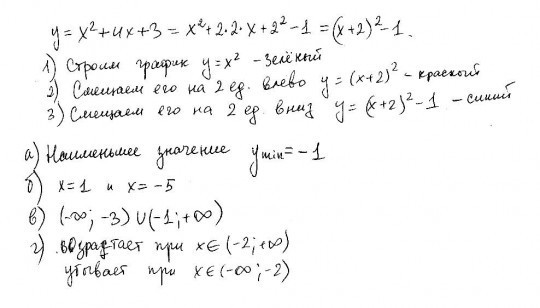 y = x² + 4x + 3 = x² + 2·2·x + 2² - 1 = (x+2)² - 1.
1) Строим график y = x² - зелёный
2) Смещаем его на 2 ед. влево y = (x+2)² - красный
3) Смещаем его на 2 ед. вниз y = (x+2)² - 1 - синий
а) Наименьшее значение ymin = -1
б) x = 1 и x = -5
в) (-∞; -3) ∪ (-1; +∞)
г) возрастает при x ∈ (-2; +∞)
убывает при x ∈ (-∞; -2)